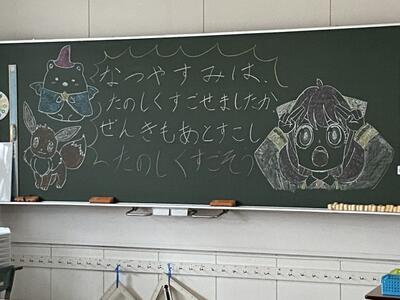 なつやすみは、
たのしくすごせましたか
ぜんきもあとすこし
たのしくすごそう